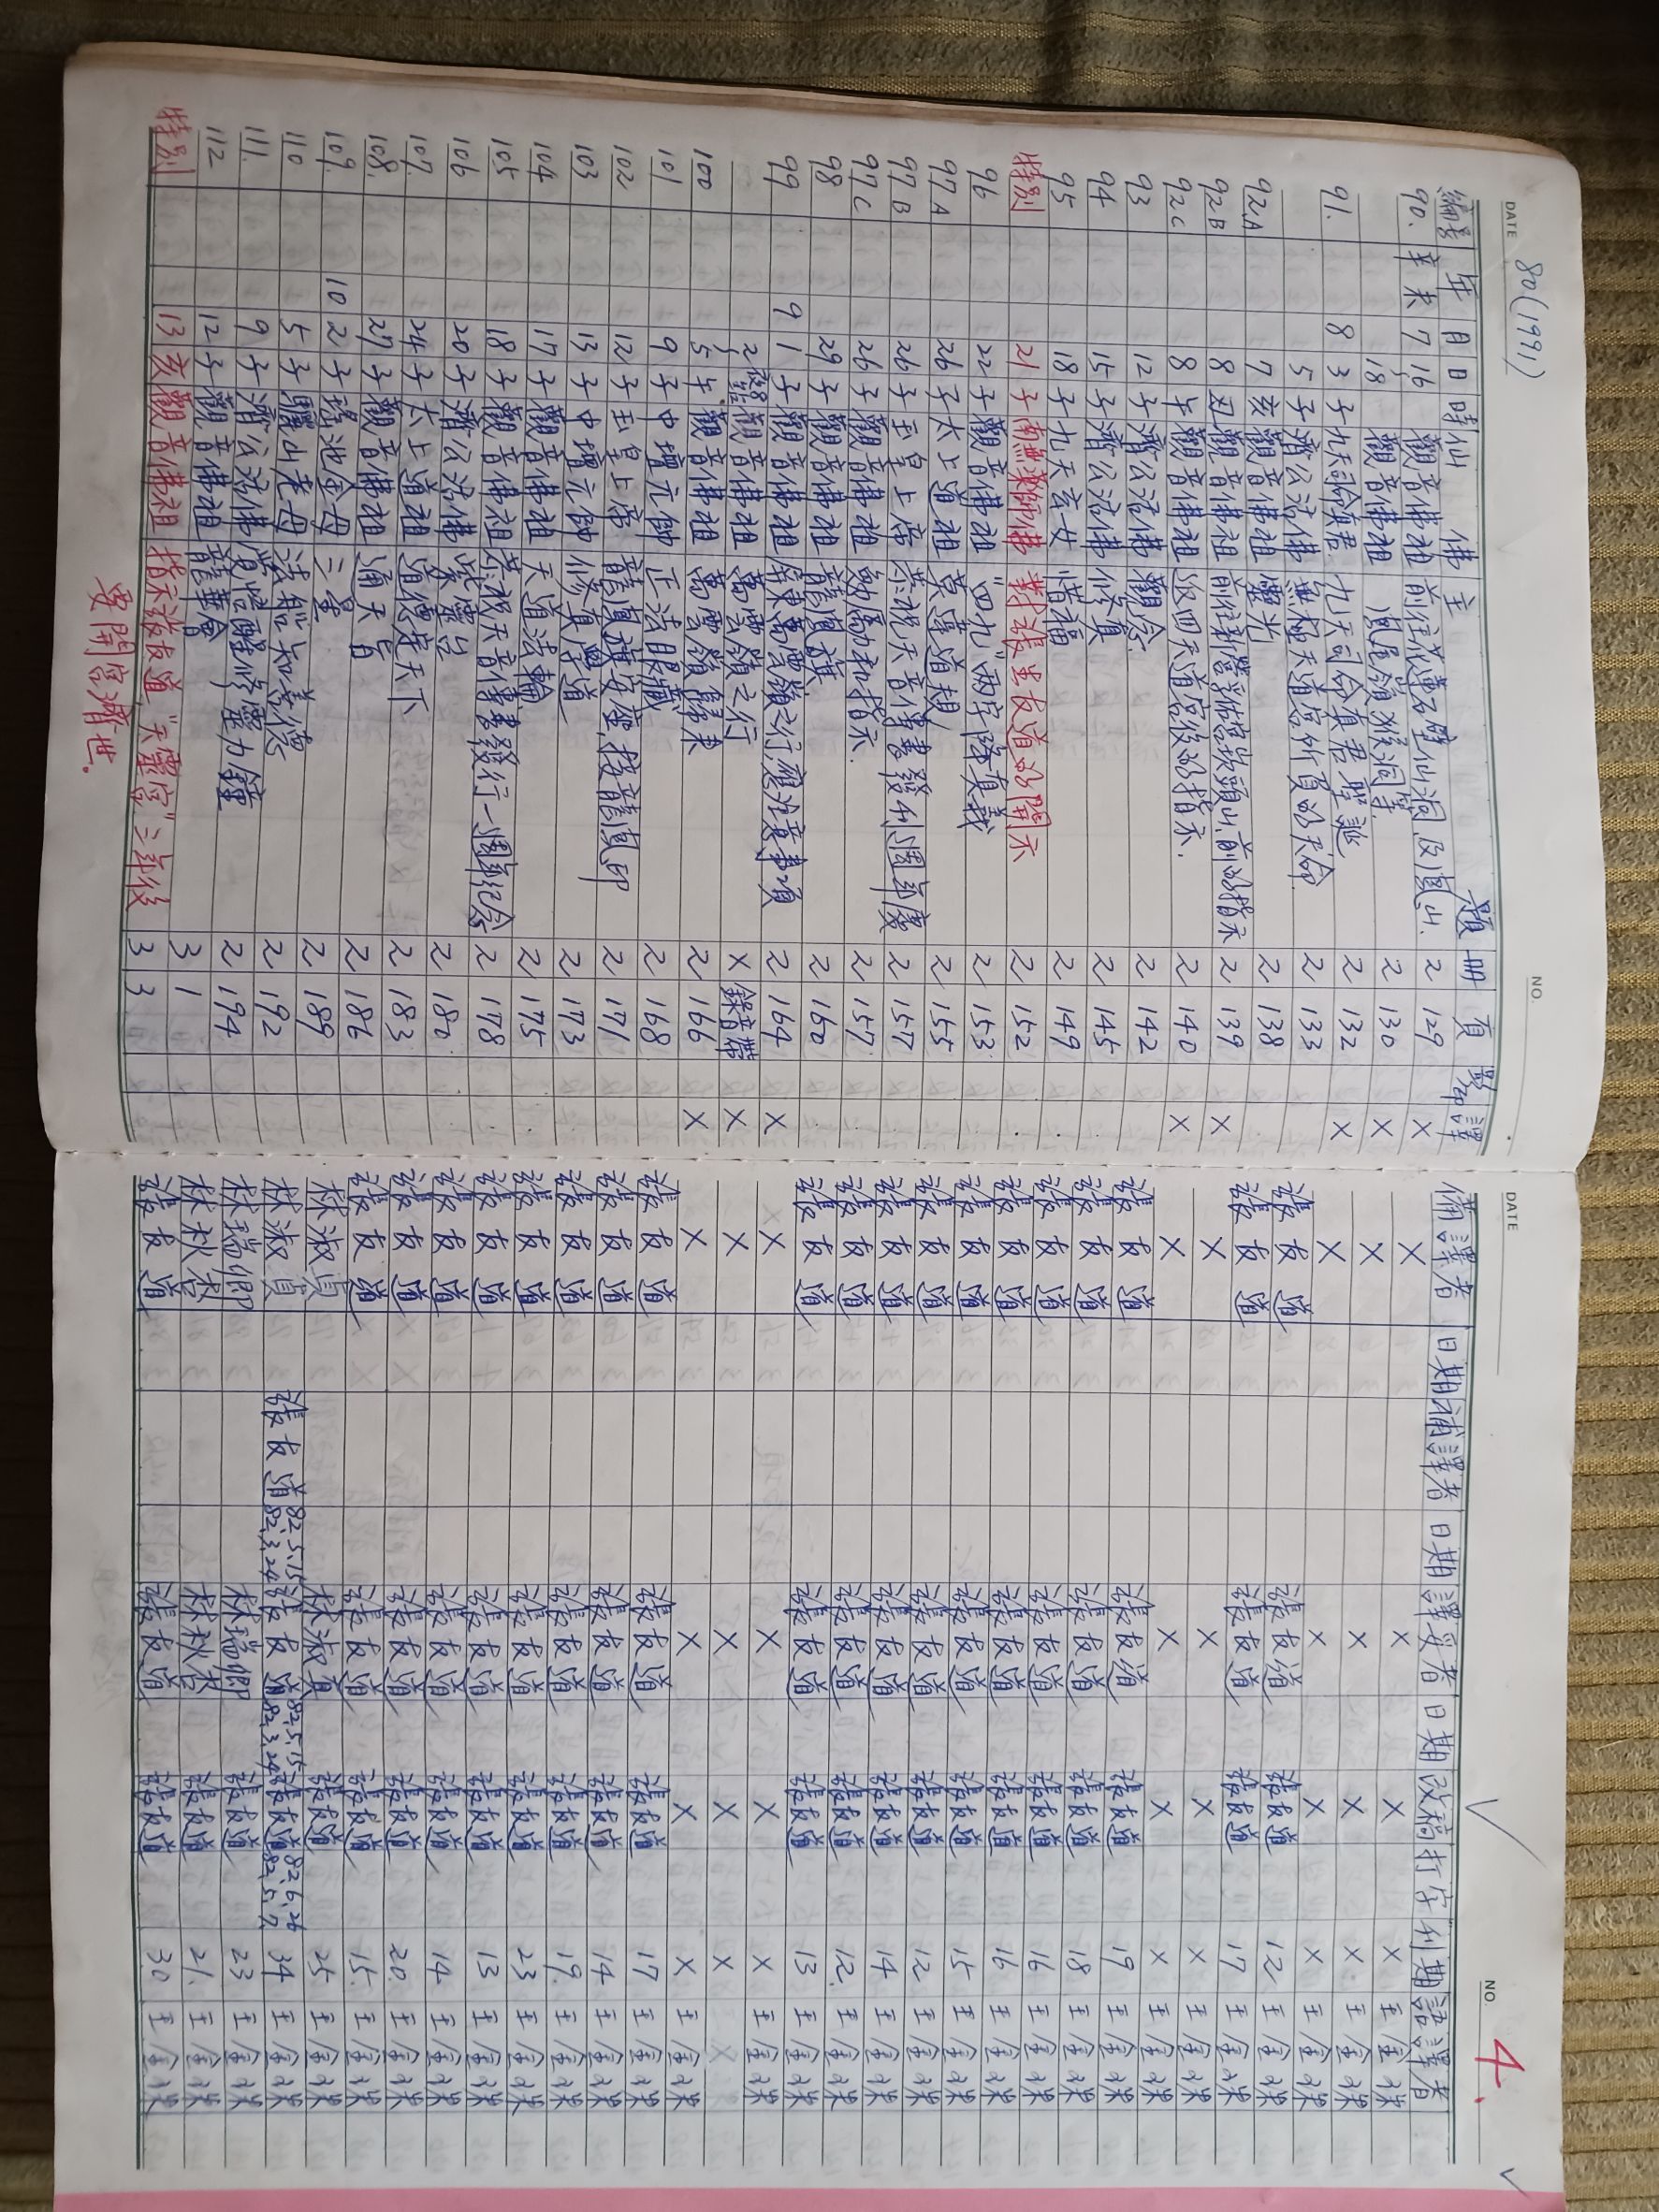 DATE 80(1991) NO.
編号 年 月 日 時 仙佛 主題 冊 頁 聖歌 譯
90. 辛未 7 16 觀音佛祖 2 129 ×
18 觀音佛祖 2 130 ×
91. 8 3 子 九天司命真君 九天司命真君聖誕 2 132 ×
5 子 濟公活佛 無極天道宏佈真的天命 2 133
92A 7 亥 觀音佛祖 靈光 2 138
92B 8 丑 觀音佛祖 2 139 ×
92C 8 午 觀音佛祖 2 140 ×
93 12 子 濟公活佛 觀念 2 142
94 15 子 濟公活佛 修真 2 145
95 18 子 九天玄女 惜福 2 149
特別 21 子 南無藥師佛 對張呈友道的開示 2 152
96 22 子 觀音佛祖 "四九"兩字隱真義 2 153
97A 26 子 太上道祖 2 155
97B 26 子 玉皇上帝 2 157
97C 26 子 觀音佛祖 勉勵和指示 2 157
98 29 子 觀音佛祖 龍鳳旗 2 160
99 9 1 子 觀音佛祖 2 164 ×
2 觀音佛祖 萬靈嶺之行 × 錄音帶 ×
100 5 午 觀音佛祖 萬靈嶺歸來 2 166 ×
101 9 子 中壇元帥 正法眼藏 2 168
102 12 子 玉皇上帝 2 171
103 13 子 中壇元帥 修真學道 2 173
104 17 子 觀音佛祖 天道法輪 2 175
105 18 子 觀音佛祖 恭祝天音傳書發行一週年紀念 2 178
106 20 子 濟公活佛 2 180
107. 24 子 太上道祖 道傳天下 2 183
108. 27 子 觀音佛祖 通天旨 2 186
109. 10 2 子 瑤池金母 三皇 2 189
110. 5 子 驪山老母 2 192
111. 9 子 濟公活佛 2 194
112 12 子 觀音佛祖 龍華會 3 1
特別 13 亥 觀音佛祖 指示張友道"天靈宮"三年後 3 3
要開宮濟世.
DATE NO. 4.
備譯者 日期 補譯者 日期 譯妥者 日期 改稿 打字 刊期 語譯者
× × × × 王金珠
× × × × 王金珠
× × × × 王金珠
張友道 張友道 張友道 12 王金珠
張友道 張友道 張友道 17 王金珠
× × × × 王金珠
× × × × 王金珠
張友道 張友道 張友道 19 王金珠
張友道 張友道 張友道 18 王金珠
張友道 張友道 張友道 16 王金珠
張友道 張友道 張友道 16 王金珠
張友道 張友道 張友道 15 王金珠
張友道 張友道 張友道 12 王金珠
張友道 張友道 張友道 14 王金珠
張友道 張友道 張友道 12. 王金珠
張友道 張友道 張友道 13 王金珠
× × × × 王金珠
× × × ×
× × × × 王金珠
張友道 張友道 張友道 17 王金珠
張友道 張友道 張友道 14 王金珠
張友道 張友道 張友道 19. 王金珠
張友道 張友道 張友道 23 王金珠
張友道 張友道 張友道 13 王金珠
張友道 張友道 張友道 14 王金珠
張友道 張友道 張友道 20. 王金珠
張友道 張友道 張友道 15. 王金珠
林淑貞 林淑貞 張友道 25 王金珠
林淑貞 張友道 82.5.15 82.3.24 張友道 82.5.15 82.3.24 張友道 82.6.26 82.5.2 34 王金珠
林瑞卿 林瑞卿 張友道 23 王金珠
林秋杏 林秋杏 張友道 21. 王金珠
張友道 張友道 張友道 30 王金珠